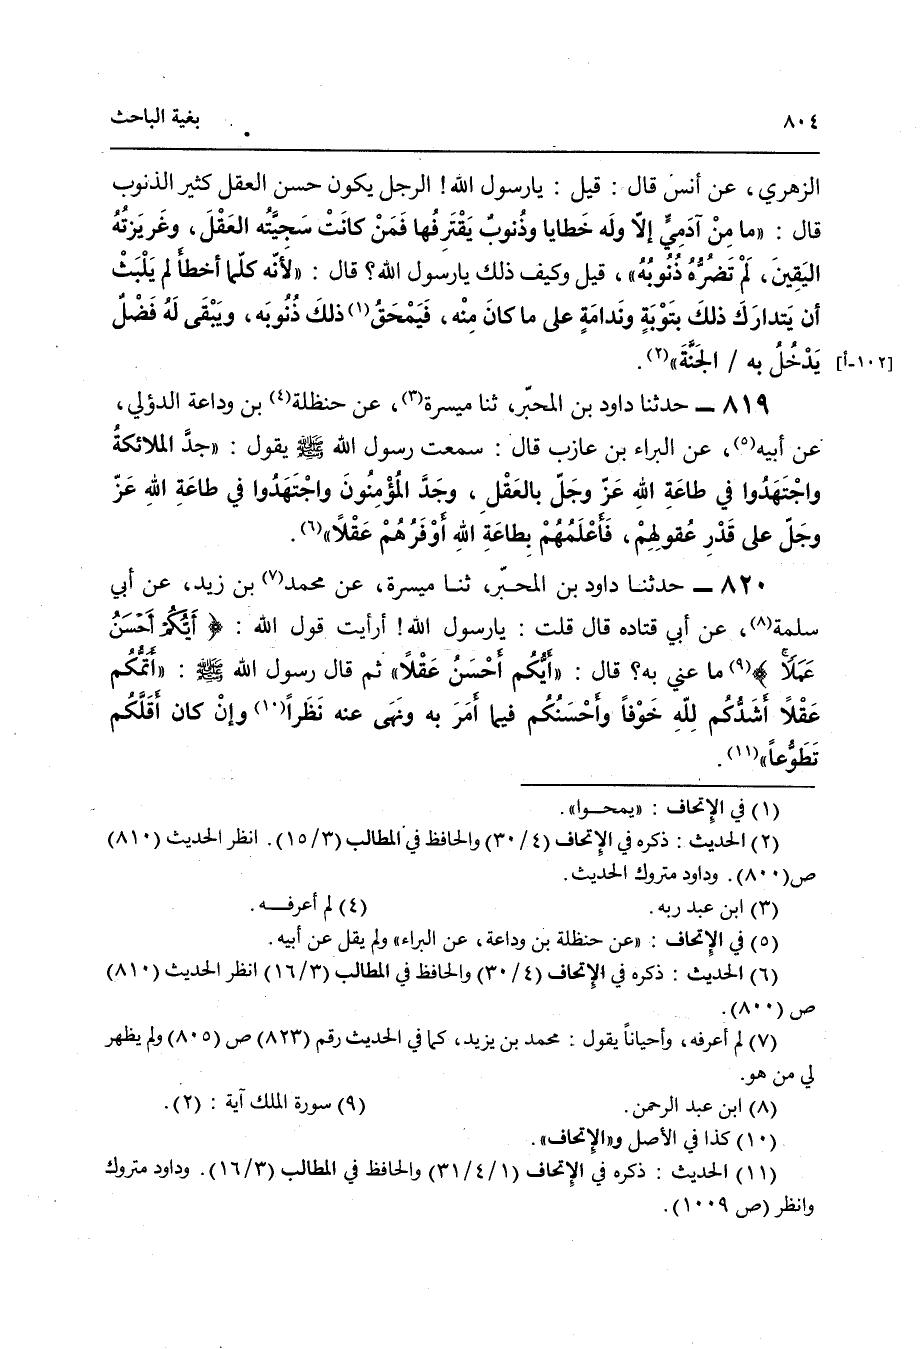 ٨٠٤ بغية الباحث
الزهري، عن أنس قال : قيل : يارسول الله! الرجل يكون حسن العقل كثير الذنوب
قال : «ما مِنْ آدَمِيٍّ إلاّ وله خطايا وذُنوبٌ يَقْتَرِفُها فَمَنْ كانَتْ سَجِيَّتُه العَقْلَ، وغَريَزتُهُ
اليَقِينَ، لَمْ تَضُرُّهُ ذُنُوبُهُ»، قيل وكيف ذلك يارسول الله؟ قال : «لأنّه كلّما أخطأَ لم يَلْبَثْ
أن يَتدارَكَ ذلكَ بتَوْبَةٍ ونَدامَةٍ على ما كانَ مِنْه، فَيَمْحَقُ(١) ذلكَ ذُنُوبَه، ويَبْقَى لَهُ فَضْلٌ
يَدْخُلُ به / الجَنَّةَ»(٢). [١٠٢-أ]
٨١٩ ـ حدثنا داود بن المحبّر، ثنا ميسرة(٣)، عن حنظلة(٤) بن وداعة الدؤلي،
عن أبيه(٥)، عن البراء بن عازب قال : سمعت رسول الله ﷺ يقول : «جدَّ الملائكةُ
واجْتَهَدُوا في طاعَةِ اللهِ عَزّ وجَلّ بالعَقْلِ، وجَدَّ المُؤْمِنُونَ واجْتَهَدُوا في طاعَةِ اللهِ عَزّ
وجَلّ على قَدْرِ عُقولِهِمْ، فَأَعْلَمُهُمْ بِطاعَةِ اللهِ أَوْفَرُهُمْ عَقْلاً»(٦).
٨٢٠ ـ حدثنا داود بن المحبّر، ثنا ميسرة، عن محمد(٧) بن زيد، عن أبي
سلمة(٨)، عن أبي قتاده قال قلت : يارسول الله! أرأيت قول الله : ﴿أَيُّكُمْ أَحْسَنُ
عَمَلًا﴾(٩) ما عني به؟ قال : «أَيُّكُم أَحْسَنُ عَقْلاً» ثم قال رسول الله ﷺ : «أَتَمُّكُم
عَقْلاً أَشَدُّكُم لِلّهِ خَوْفاً وأَحْسَنُكُم فيما أَمَرَ به ونَهَى عنه نَظَراً(١٠) وإنْ كان أَقَلَّكُم
تَطَوُّعاً»(١١).
(١) في الإتحاف : «يمحوا».
(٢) الحديث : ذكره في الإتحاف (٣٠/٤) والحافظ في المطالب (١٥/٣). انظر الحديث (٨١٠)
ص(٨٠٠). وداود متروك الحديث.
(٣) ابن عبد ربه. (٤) لم أعرفه.
(٥) في الإتحاف : «عن حنظلة بن وداعة، عن البراء» ولم يقل عن أبيه.
(٦) الحديث : ذكره في الإتحاف (٣٠/٤) والحافظ في المطالب (١٦/٣) انظر الحديث (٨١٠)
ص (٨٠٠).
(٧) لم أعرفه، وأحياناً يقول : محمد بن يزيد، كما في الحديث رقم (٨٢٣) ص (٨٠٥) ولم يظهر
لي من هو.
(٨) ابن عبد الرحمن. (٩) سورة الملك آية : (٢).
(١٠) كذا في الأصل و«الإتحاف».
(١١) الحديث : ذكره في الإتحاف (٣١/٤/١) والحافظ في المطالب (١٦/٣). وداود متروك
وانظر (ص ١٠٠٩).